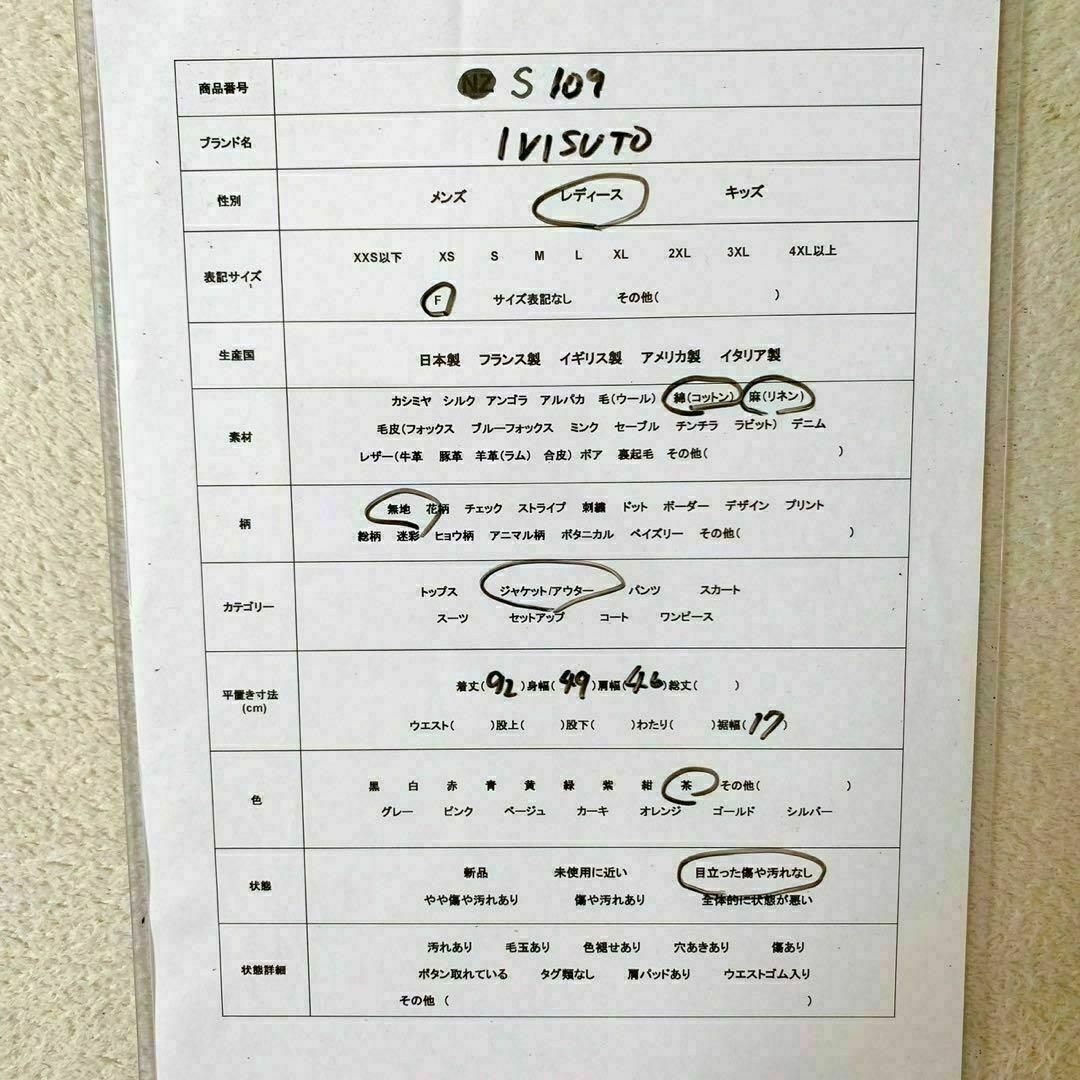 商品番号 NZ S 109
ブランド名 IVISUTO
性別 メンズ レディース キッズ
XXS以下 XS S M L XL 2XL 3XL 4XL以上
表記サイズ
F サイズ表記なし その他( )
生産国 日本製 フランス製 イギリス製 アメリカ製 イタリア製
カシミヤ シルク アンゴラ アルパカ 毛(ウール) 綿(コットン) 麻(リネン)
素材 毛皮(フォックス ブルーフォックス ミンク セーブル チンチラ ラビット) デニム
レザー(牛革 豚革 羊革(ラム) 合皮) ボア 裏起毛 その他( )
柄 無地 花柄 チェック ストライプ 刺繍 ドット ボーダー デザイン プリント
総柄 迷彩 ヒョウ柄 アニマル柄 ボタニカル ペイズリー その他( )
カテゴリー トップス ジャケット/アウター パンツ スカート
スーツ セットアップ コート ワンピース
平置き寸法 着丈(92)身幅(49)肩幅(46)総丈( )
(cm) ウエスト( )股上( )股下( )わたり( )裾幅(17)
色 黒 白 赤 青 黄 緑 紫 紺 茶 その他( )
グレー ピンク ベージュ カーキ オレンジ ゴールド シルバー
状態 新品 未使用に近い 目立った傷や汚れなし
やや傷や汚れあり 傷や汚れあり 全体的に状態が悪い
汚れあり 毛玉あり 色褪せあり 穴あきあり 傷あり
状態詳細 ボタン取れている タグ類なし 肩パッドあり ウエストゴム入り
その他 ( )